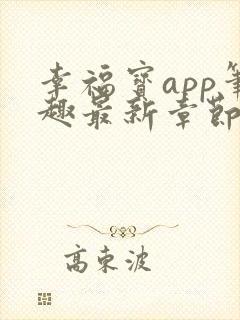 幸福宝app笔
趣最新章节
高东波